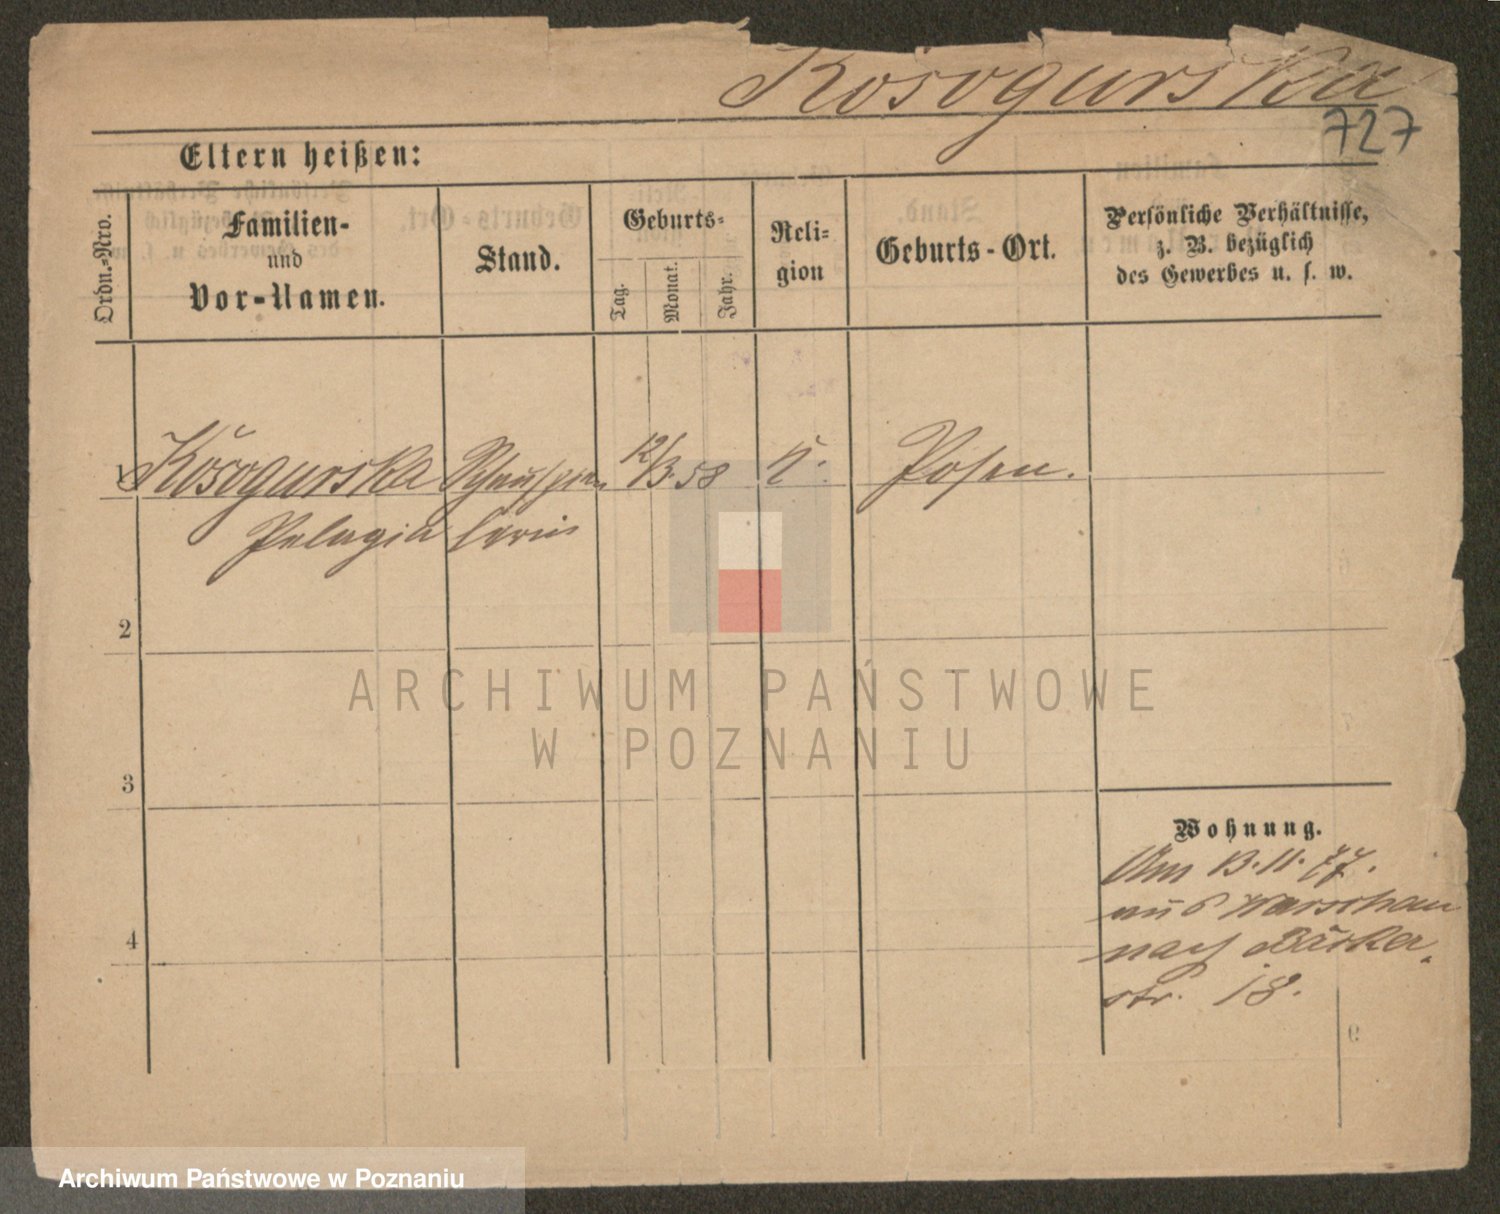 Kosogurska
727
Eltern heißen:
Ordn.-Nro.
Familien-
und
Vor-Namen.
Stand.
Geburts-
Tag.
Monat.
Jahr.
Reli-
gion
Geburts-Ort.
Persönliche Verhältnisse,
z. B. bezüglich
des Gewerbes u. s. w.
1 Kosogurska Schauspie- 12/3. 58 K. Posen.
Pelagia lerin
2
3
4
Wohnung.
Am 13.11.77.
aus Warschau
nach Bäcker-
str. 18.
ARCHIWUM PAŃSTWOWE
W POZNANIU
Archiwum Państwowe w Poznaniu